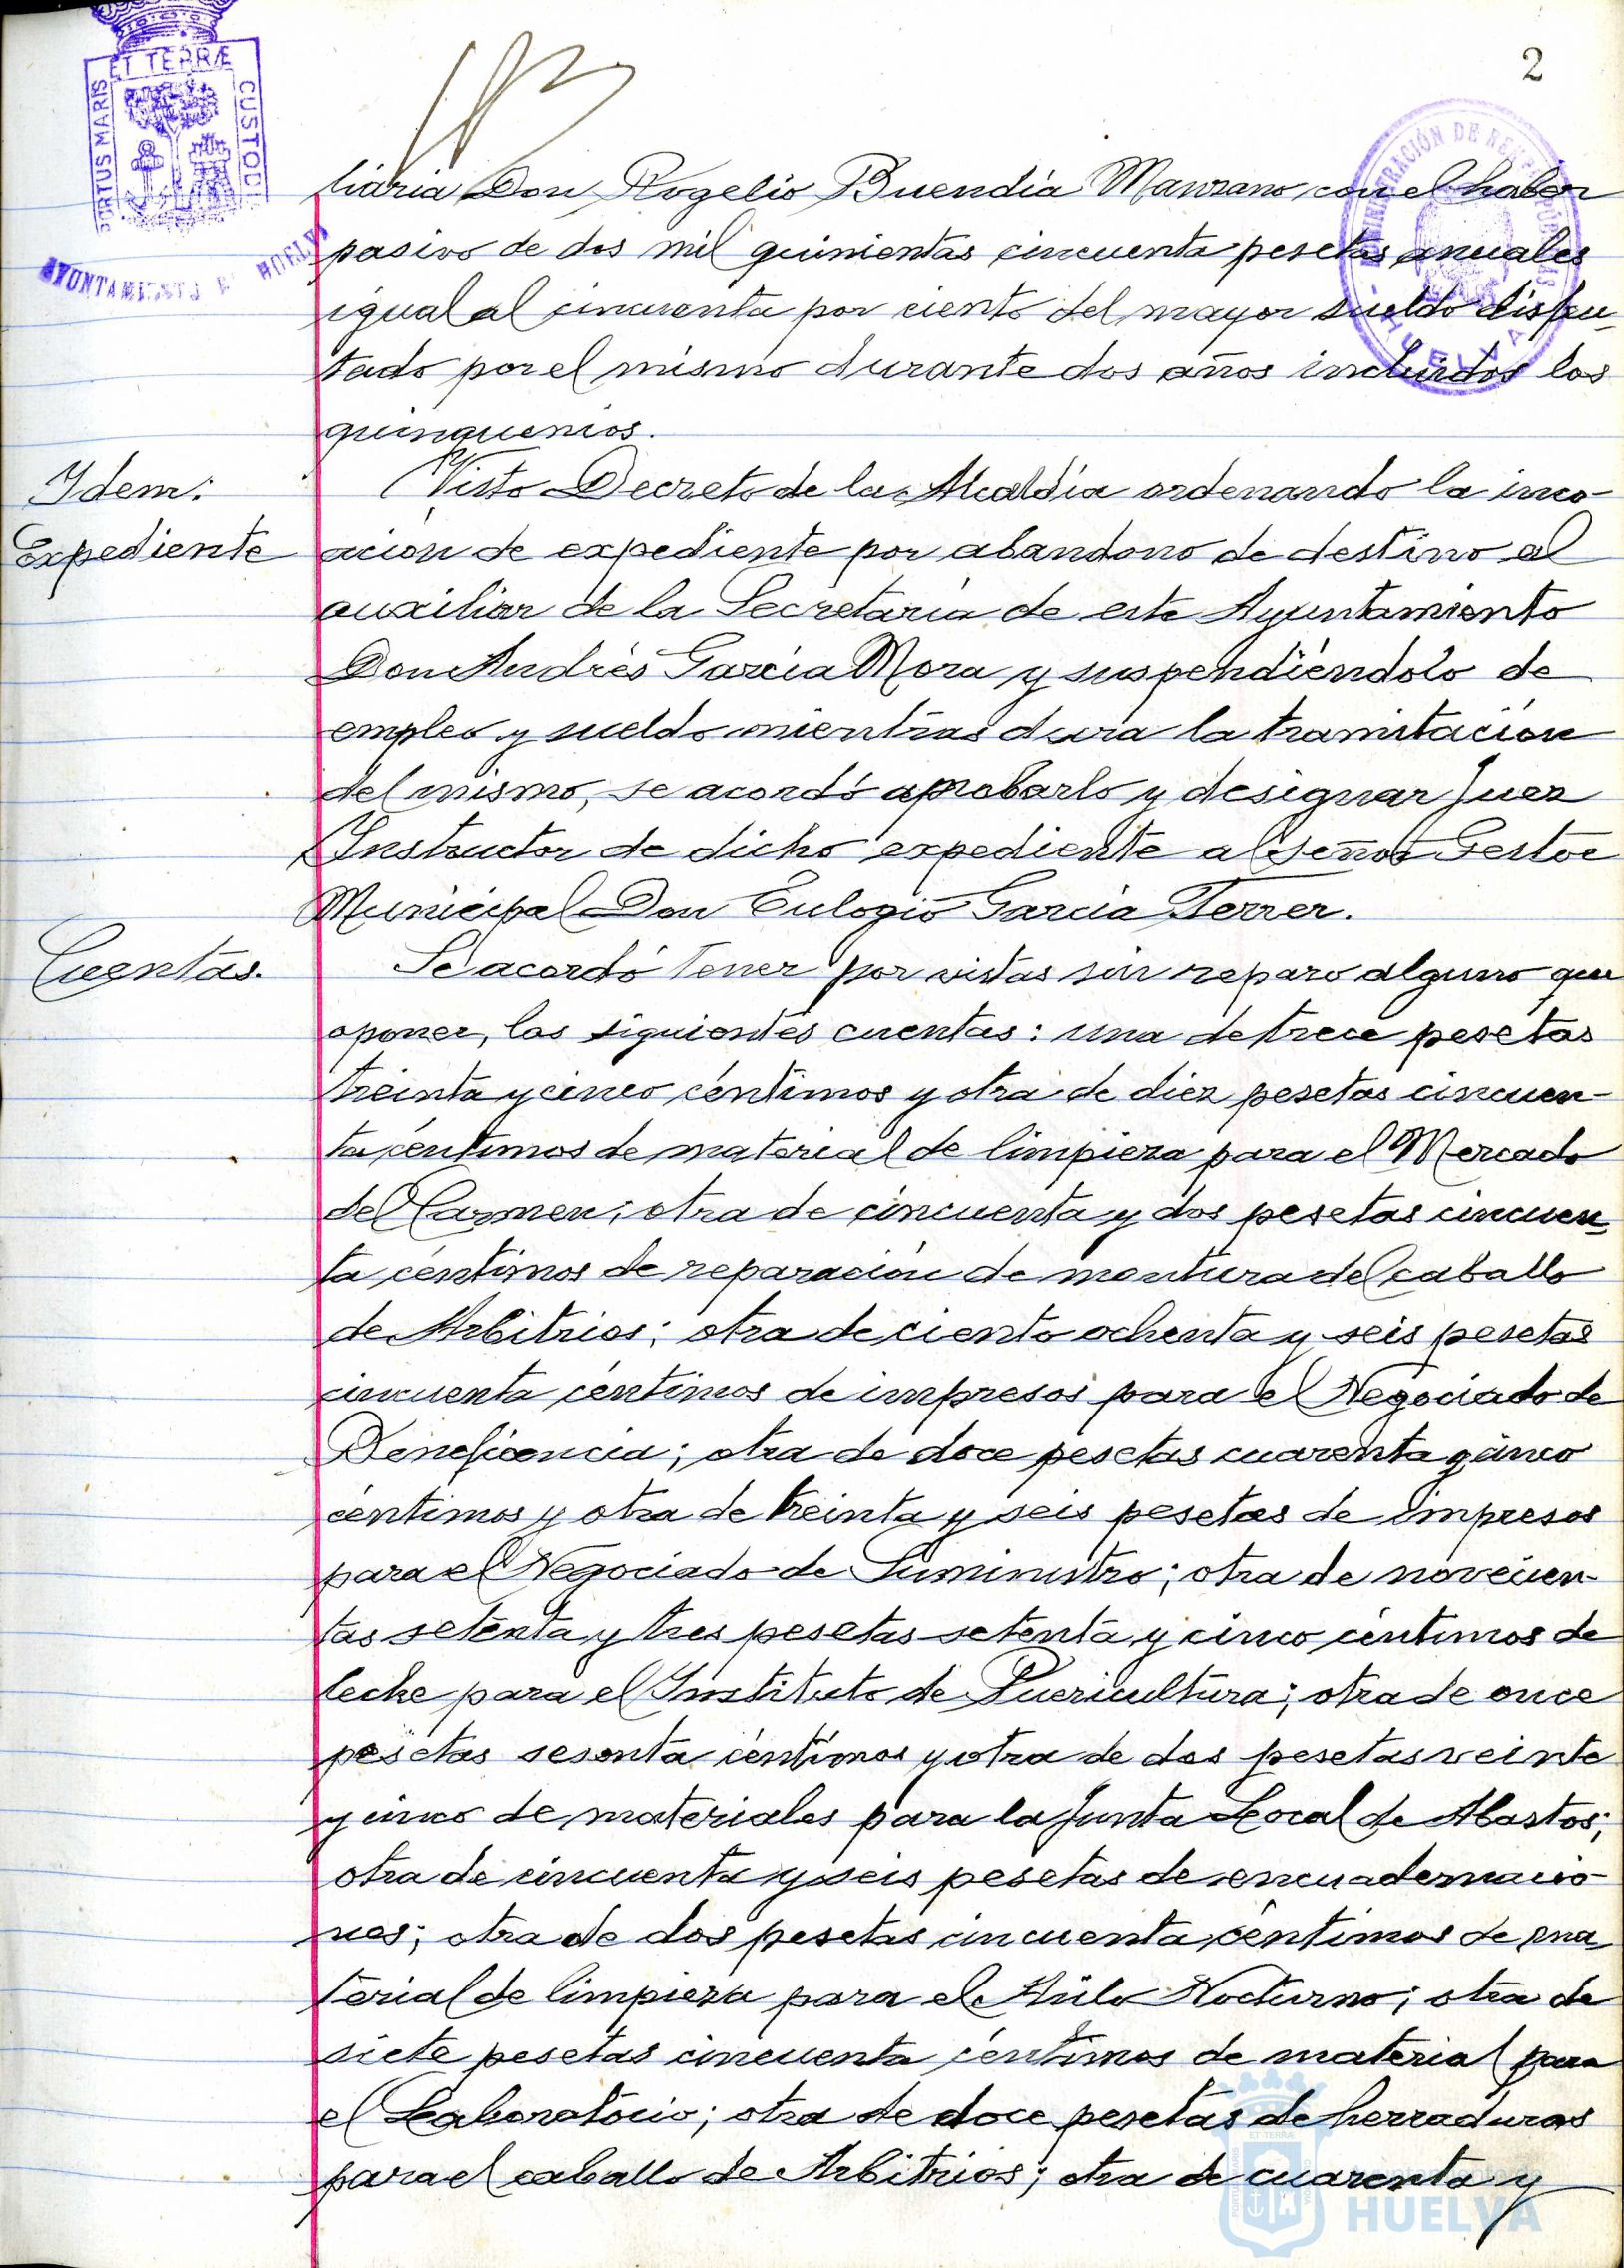 2
ET TERRÆ
PORTUS MARIS
CUSTODI
AYUNTAMIENTO DE HUELVA
ADMINISTRACIÓN DE RENTAS PÚBLICAS
HUELVA
liaria Don Rogelio Buendía Manzano con el haber
pasivo de dos mil quinientas cincuenta pesetas anuales
igual al cincuenta por ciento del mayor sueldo disfru-
tado por el mismo durante dos años incluidos los
quinquenios.
Idem:
Expediente
Visto Decreto de la Alcaldía ordenando la inco-
ación de expediente por abandono de destino al
auxiliar de la Secretaría de este Ayuntamiento
Don Andrés García Mora y suspendiéndolo de
empleo y sueldo mientras dura la tramitación
del mismo, se acordó aprobarlo y designar Juez
Instructor de dicho expediente al señor Gestor
Municipal Don Eulogio García Ferrer.
Cuentas.
Se acordó tener por vistas sin reparo alguno que
oponer, las siguientes cuentas: una de trece pesetas
treinta y cinco céntimos y otra de diez pesetas cincuen-
ta céntimos de material de limpieza para el Mercado
del Carmen; otra de cincuenta y dos pesetas cincuen-
ta céntimos de reparación de montura del caballo
de Arbitrios; otra de ciento ochenta y seis pesetas
cincuenta céntimos de impresos para el Negociado de
Beneficencia; otra de doce pesetas cuarenta y cinco
céntimos y otra de treinta y seis pesetas de impresos
para el Negociado de Suministro; otra de novecien-
tas setenta y tres pesetas setenta y cinco céntimos de
leche para el Instituto de Puericultura; otra de once
pesetas sesenta céntimos y otra de dos pesetas veinte
y cinco de materiales para la Junta Local de Abastos;
otra de cincuenta y seis pesetas de encuadernacio-
nes; otra de dos pesetas cincuenta céntimos de ma-
terial de limpieza para el Asilo Nocturno; otra de
siete pesetas cincuenta céntimos de material para
el Laboratorio; otra de doce pesetas de herraduras
para el caballo de Arbitrios; otra de cuarenta y
HUELVA